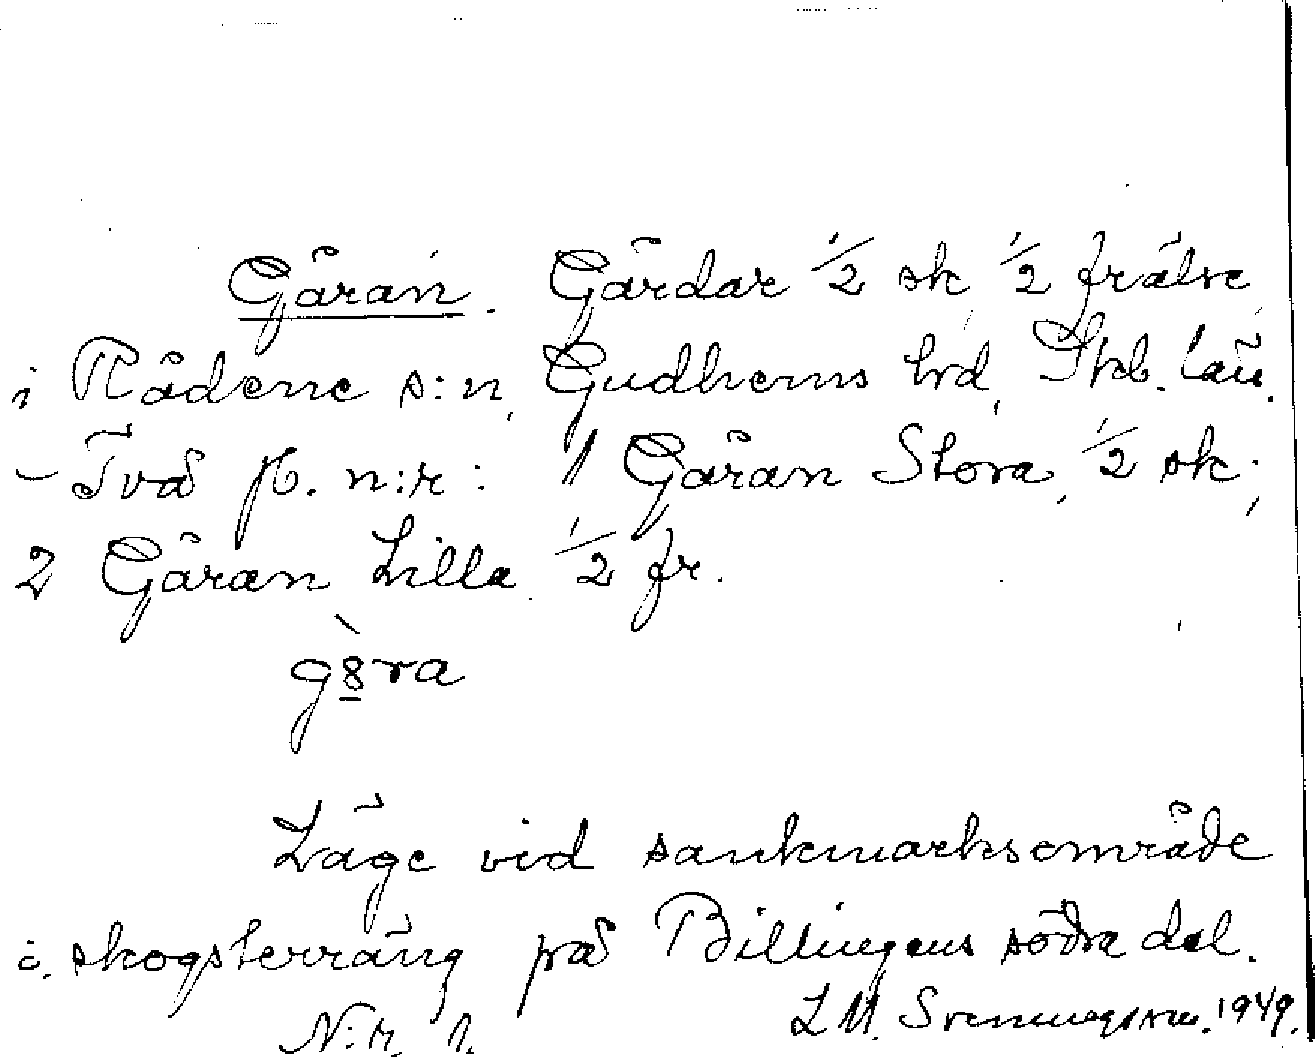 Gåran. Gårdar 1/2 sk 1/2 frälse
i Rådene s:n, Gudhems hd, Skb. län.
- Två jb. n:r: 1 Gåran Stora, 1/2 sk;
2 Gåran Lilla 1/2 fr.
g8ra
Läge vid sankmarksområde
i skogsterräng på Billingens södra del.
N:r 1. L.M. Svenungsson. 1949.